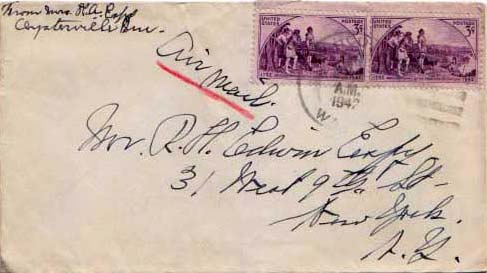 From Mrs. H.A. Espy
Oysterville
Air Mail.
UNITED STATES POSTAGE 3¢
UNITED STATES POSTAGE 3¢
1792
A.M.
1942
Mr. R. H. Edwin Espy
31 West 9th St-
New York.
N. Y.